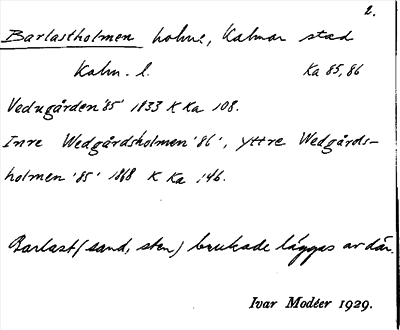 2.
Barlastholmen holme, Kalmar stad
Kalm. l. Ka 85, 86
Vedugården '85' 1833 K Ka 108.
Inre Wedgårdsholmen '86', yttre Wedgårds-
holmen '85' 1868 K Ka 146.
Barlast (sand, sten) brukade läggas av där.
Ivar Modéer 1929.